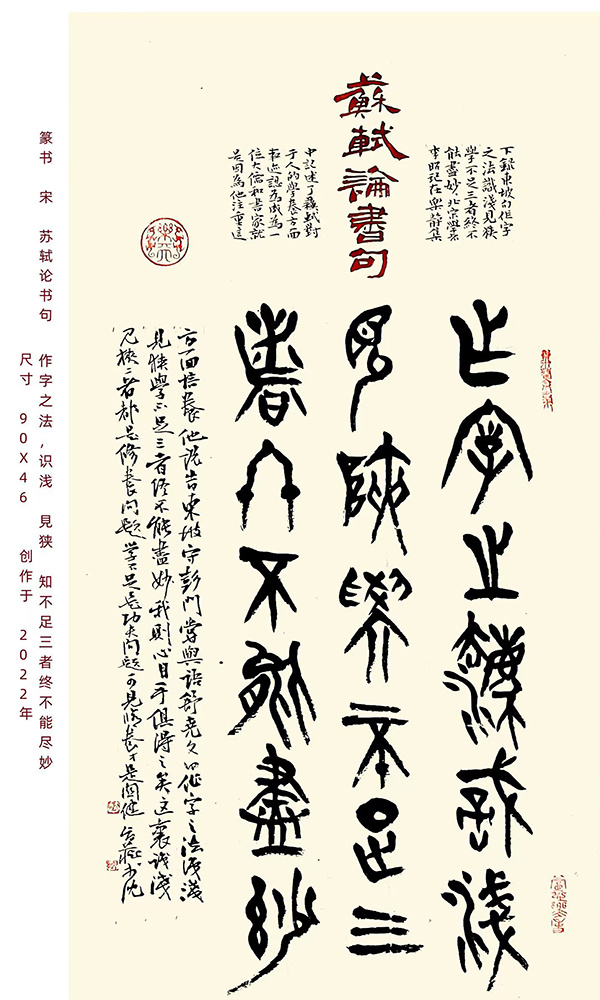 蘇軾論書句
下録東坡句作字
之法識淺見狹
學不足三者終不
能盡妙北宋學者
李昭玘在樂静集
中記述了蘇軾對
于人的學養方面
認為成為一
位大儒和書家就
是因為他注重這
乍字之灋識淺
見陜學不足三
者終不能盡妙
方面修養他説昔東坡守彭門嘗與語舒堯文曰作字之法識淺
見狹學不足三者終不能盡妙我則心目手俱得之矣這裏識淺
見狹二者都是修養問題學不足是功夫問題可見修養才是關鍵
篆书 宋 苏轼论书句 作字之法,识浅 見狭 知不足三者终不能尽妙
尺寸 90X46 创作于 2022年